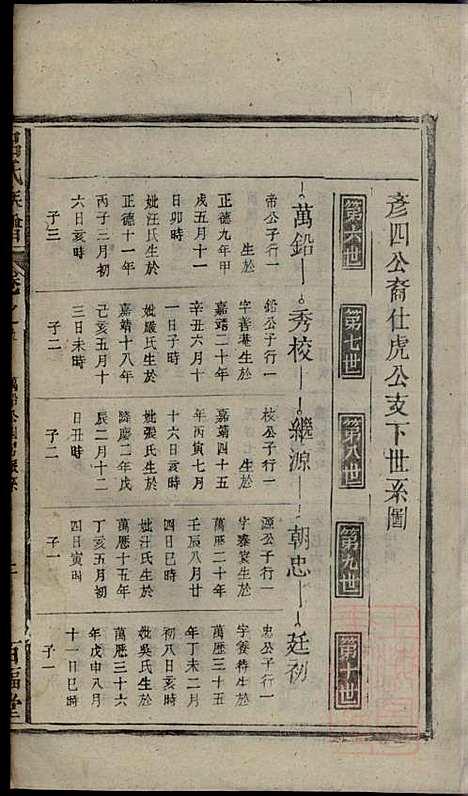 彥四公裔仕虎公支下世系圖
第六世
第七世
第八世
第九世
第十世
萬鉛
秀校
繼源
朝忠
廷初
帝公子行一
生於
正德九年甲
戌五月十一
日卯時
妣汪氏生於
正德十一年
丙子三月初
六日亥時
子三
鉛公子行一
字善菴生於
嘉靖二十年
辛丑六月十
一日子時
妣嚴氏生於
嘉靖十八年
己亥五月十
三日未時
子二
校公子行一
生於
嘉靖四十五
年丙寅七月
十六日亥時
妣張氏生於
隆慶二年戊
辰二月十二
日丑時
子二
源公子行一
字泰棠生於
萬厯二十年
壬辰八月廿
四日巳時
妣汪氏生於
萬厯十五年
丁亥五月初
四日寅時
子一
忠公子行一
字養特生於
萬厯三十五
年丁未二月
初八日亥時
妣吳氏生於
萬厯三十六
年戊申八月
十一日巳時
子一
氏族譜
卷之
百福堂